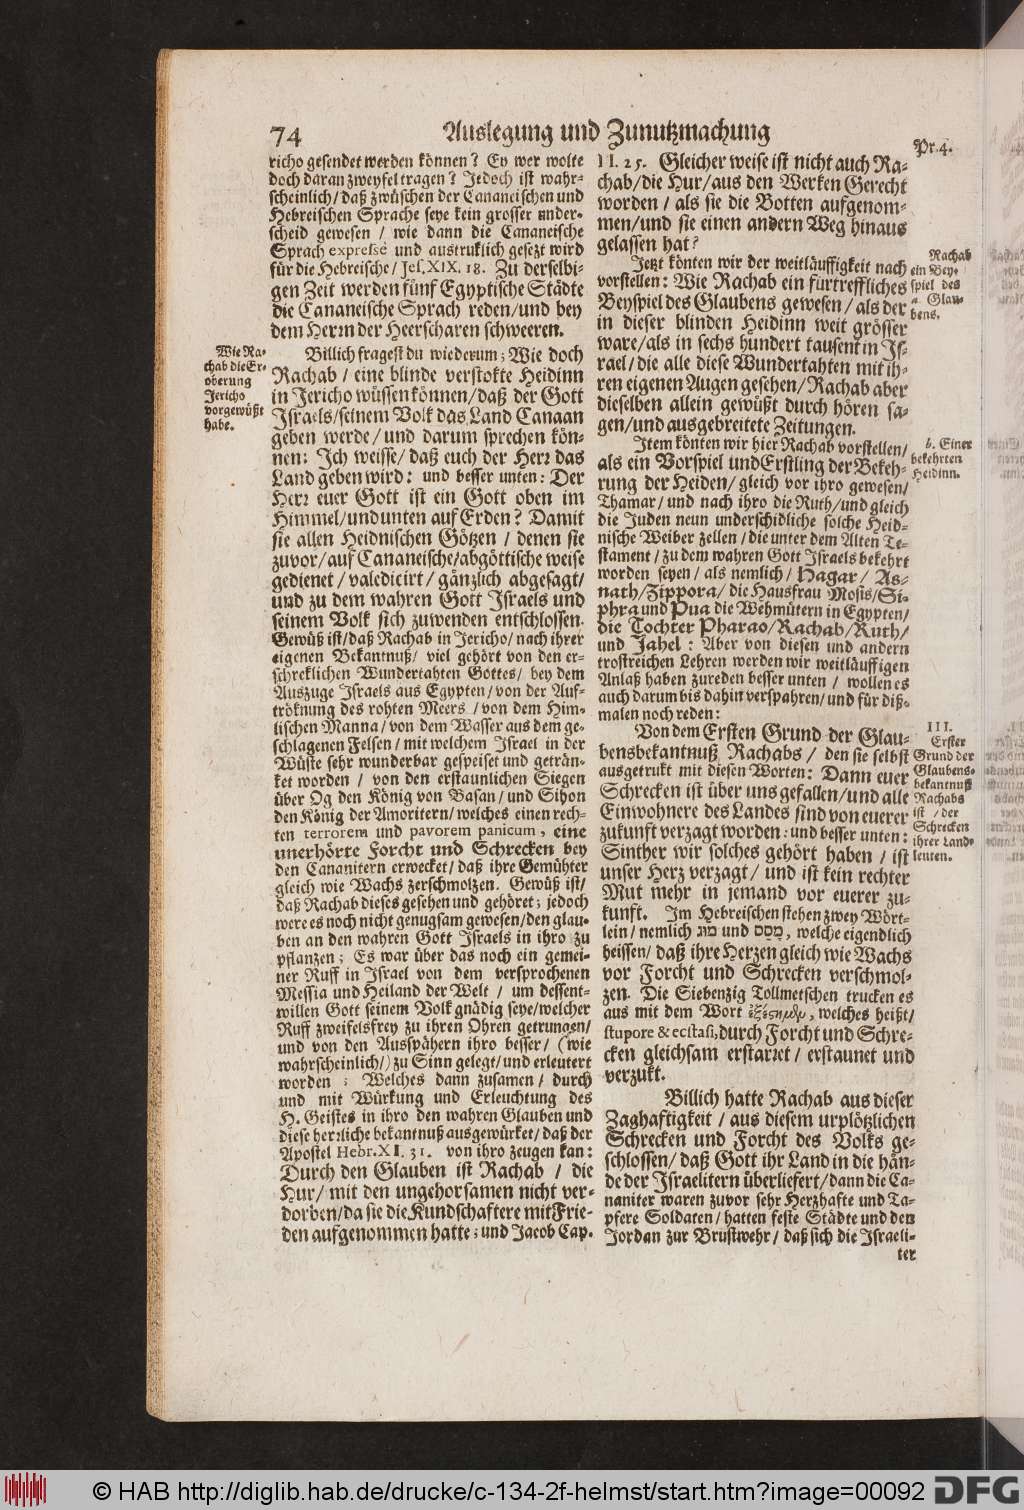 74 Auslegung und Zunutzmachung
Pr. 4.
richo gesendet werden können? Ey wer wolte
doch daran zweyfel tragen? Jedoch ist wahr-
scheinlich/ daß zwüschen der Cananeischen und
Hebreischen Sprache seye kein grosser under-
scheid gewesen / wie dann die Cananeische
Sprach expresse und austruklich gesezt wird
für die Hebreische/ Jes. XIX. 18. Zu derselbi-
gen Zeit werden fünf Egyptische Städte
die Cananeische Sprach reden/und bey
dem Herrn der Heerscharen schweeren.
Wie Ra-
chab die Er-
oberung
Jericho
vorgewüßt
habe.
Billich fragest du wiederum; Wie doch
Rachab / eine blinde verstokte Heidinn
in Jericho wüssen können/ daß der Gott
Israels/seinem Volk das Land Canaan
geben werde/ und darum sprechen kön-
nen: Ich weisse/ daß euch der Herr das
Land geben wird: und besser unten: Der
Herr euer Gott ist ein Gott oben im
Himmel/und unten auf Erden? Damit
sie allen Heidnischen Götzen / denen sie
zuvor/auf Cananeische/abgöttische weise
gedienet / valedicirt/ gänzlich abgesagt/
und zu dem wahren Gott Israels und
seinem Volk sich zuwenden entschlossen.
Gewüß ist/ daß Rachab in Jericho/ nach ihrer
eigenen Bekantnuß/ viel gehört von den er-
schreklichen Wundertahten Gottes/ bey dem
Auszuge Israels aus Egypten/ von der Auf-
tröknung des rohten Meers / von dem Him-
lischen Manna/ von dem Wasser aus dem ge-
schlagenen Felsen/ mit welchem Israel in der
Wüste sehr wunderbar gespeiset und geträn-
ket worden / von den erstaunlichen Siegen
über Og den König von Basan/ und Sihon
den König der Amoritern/ welches einen rech-
ten terrorem und pavorem panicum, eine
unerhörte Forcht und Schrecken bey
den Cananitern erwecket/ daß ihre Gemühter
gleich wie Wachs zerschmolzen. Gewüß ist/
daß Rachab dieses gesehen und gehöret; jedoch
were es noch nicht genugsam gewesen/ den glau-
ben an den wahren Gott Israels in ihro zu
pflanzen; Es war über das noch ein gemei-
ner Ruff in Israel von dem versprochenen
Messia und Heiland der Welt / um dessent-
willen Gott seinem Volk gnädig seye/welcher
Ruff zweifelsfrey zu ihren Ohren getrungen/
und von den Auspähern ihro besser/ (wie
wahrscheinlich/) zu Sinn gelegt/ und erleutert
worden ; Welches dann zusamen/ durch
und mit Würkung und Erleuchtung des
H. Geistes in ihro den wahren Glauben und
diese herrliche bekantnuß ausgewürket/ daß der
Apostel Hebr. XI. 31. von ihro zeugen kan:
Durch den Glauben ist Rachab / die
Hur/ mit den ungehorsamen nicht ver-
dorben/da sie die Kundschaftere mit Frie-
den aufgenommen hatte; und Jacob Cap.
II. 25. Gleicher weise ist nicht auch Ra-
chab/die Hur/aus den Werken Gerecht
worden / als sie die Botten aufgenom-
men/und sie einen andern Weg hinaus
gelassen hat?
Jetzt könten wir der weitläuffigkeit nach
vorstellen: Wie Rachab ein fürtreffliches
Beyspiel des Glaubens gewesen / als der
in dieser blinden Heidinn weit grösser
ware/als in sechs hundert tausent in Is-
rael/ die alle diese Wundertahten mit ih-
ren eigenen Augen gesehen/ Rachab aber
dieselben allein gewüßt durch hören sa-
gen/und ausgebreitete Zeitungen.
Rachab
ein Bey-
spiel des
a. Glau-
bens.
Item könten wir hier Rachab vorstellen/
als ein Vorspiel und Erstling der Bekeh-
rung der Heiden/ gleich vor ihro gewesen/
Thamar/ und nach ihro die Ruth/und gleich
die Juden neun underschidliche solche Heid-
nische Weiber zellen / die unter dem Alten Te-
stament / zu dem wahren Gott Israels bekehrt
worden seyen/ als nemlich/ Hagar/ As-
nath/Zippora/ die Hausfrau Mosis/Si-
phra und Pua die Wehmütern in Egypten/
die Tochter Pharao/Rachab/Ruth/
und Jahel: Aber von diesen und andern
trostreichen Lehren werden wir weitläuffigen
Anlaß haben zureden besser unten / wollen es
auch darum bis dahin verspahren/ und für diß-
malen noch reden:
b. Einer
bekehrten
Heidinn.
Von dem Ersten Grund der Glau-
bensbekantnuß Rachabs / den sie selbst
ausgetrukt mit diesen Worten: Dann euer
Schrecken ist über uns gefallen/ und alle
Einwohnere des Landes sind von euerer
zukunft verzagt worden: und besser unten:
Sinther wir solches gehört haben / ist
unser Herz verzagt/ und ist kein rechter
Mut mehr in jemand vor euerer zu-
kunft. Im Hebreischen stehen zwey Wört-
lein/ nemlich מוג und מסס, welche eigendlich
heissen/ daß ihre Herzen gleich wie Wachs
vor Forcht und Schrecken verschmol-
zen. Die Siebenzig Tollmetschen trucken es
aus mit dem Wort welches heißt/
stupore & ecstasi, durch Forcht und Schre-
cken gleichsam erstarret/ erstaunet und
verzukt.
III.
Erster
Grund der
Glaubens-
bekantnuß
Rachabs
ist / der
Schrecken
ihrer Land-
leuten.
Billich hatte Rachab aus dieser
Zaghaftigkeit / aus diesem urplötzlichen
Schrecken und Forcht des Volks ge-
schlossen/ daß Gott ihr Land in die hän-
de der Israelitern überliefert/ dann die Ca-
naniter waren zuvor sehr Herzhafte und Ta-
pfere Soldaten/ hatten feste Städte und den
Jordan zur Brustwehr/ daß sich die Israeli-
ter
© HAB http://diglib.hab.de/drucke/c-134-2f-helmst/start.htm?image=00092 DFG